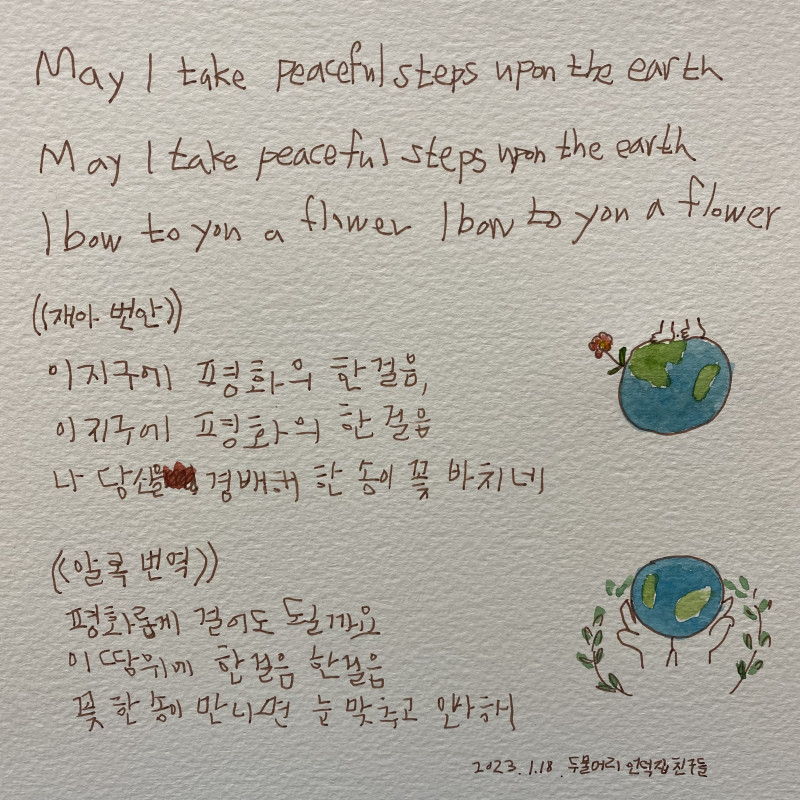 May I take peaceful steps upon the earth
May I take peaceful steps upon the earth
I bow to you a flower I bow to you a flower
((재아 번안))
이 지구에 평화의 한 걸음,
이 지구에 평화의 한 걸음
나 당신을 경배해 한 송이 꽃 바치네
((알록 번역))
평화롭게 걸어도 될까요
이 땅위에 한걸음 한걸음
꽃 한 송이 만나면 눈 맞추고 인사해
2023. 1. 18. 두물머리 언덕집 친구들